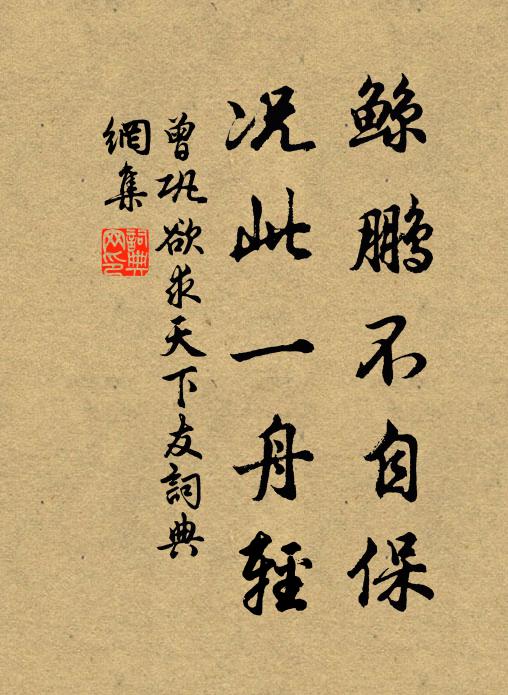 鯨鵬不自保
况此一舟輕
曾巩欲求天下友詞典
網集
詞典
网印